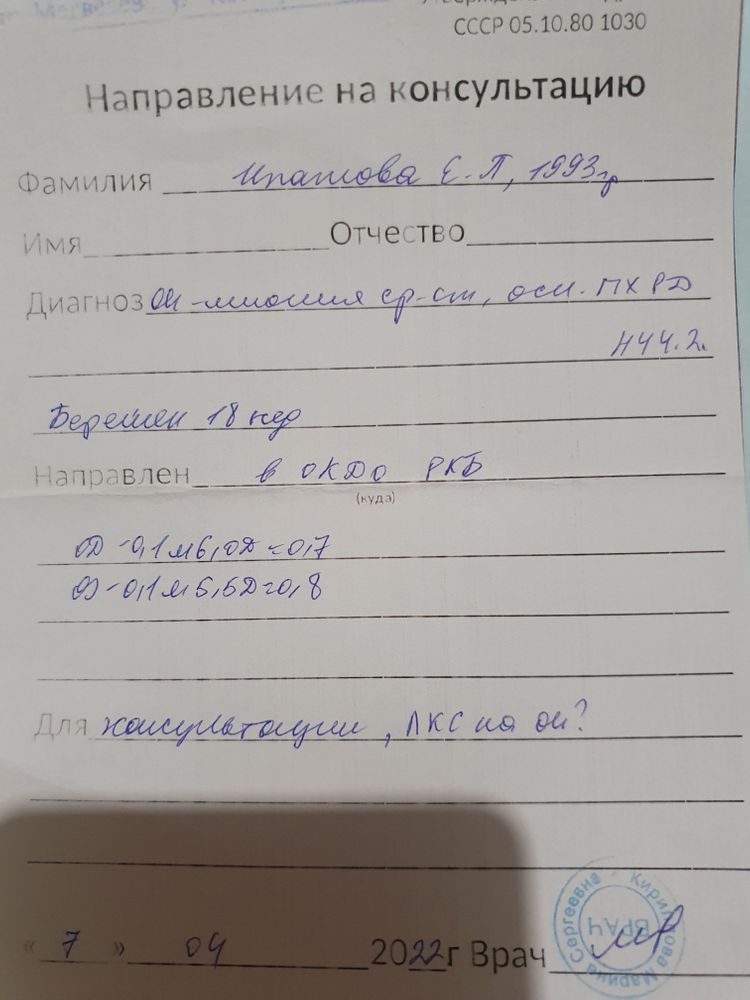 СССР 05.10.80 1030
Направление на консультацию
Фамилия Ипатова Е.П, 1993гр
Имя Отчество
Диагноз OU - миопия ср-ст, осл. ПХРД
H44.2.
Беремен 18 нед
Направлен в ОКДО РКБ
(куда)
OD - 0,1 м 6,0D = 0,7
OS - 0,1 м 5,5D = 0,8
Для консультации, ЛКС на ou?
« 7 » 04 2022г Врач
Марина Сергеевна
ВРАЧ